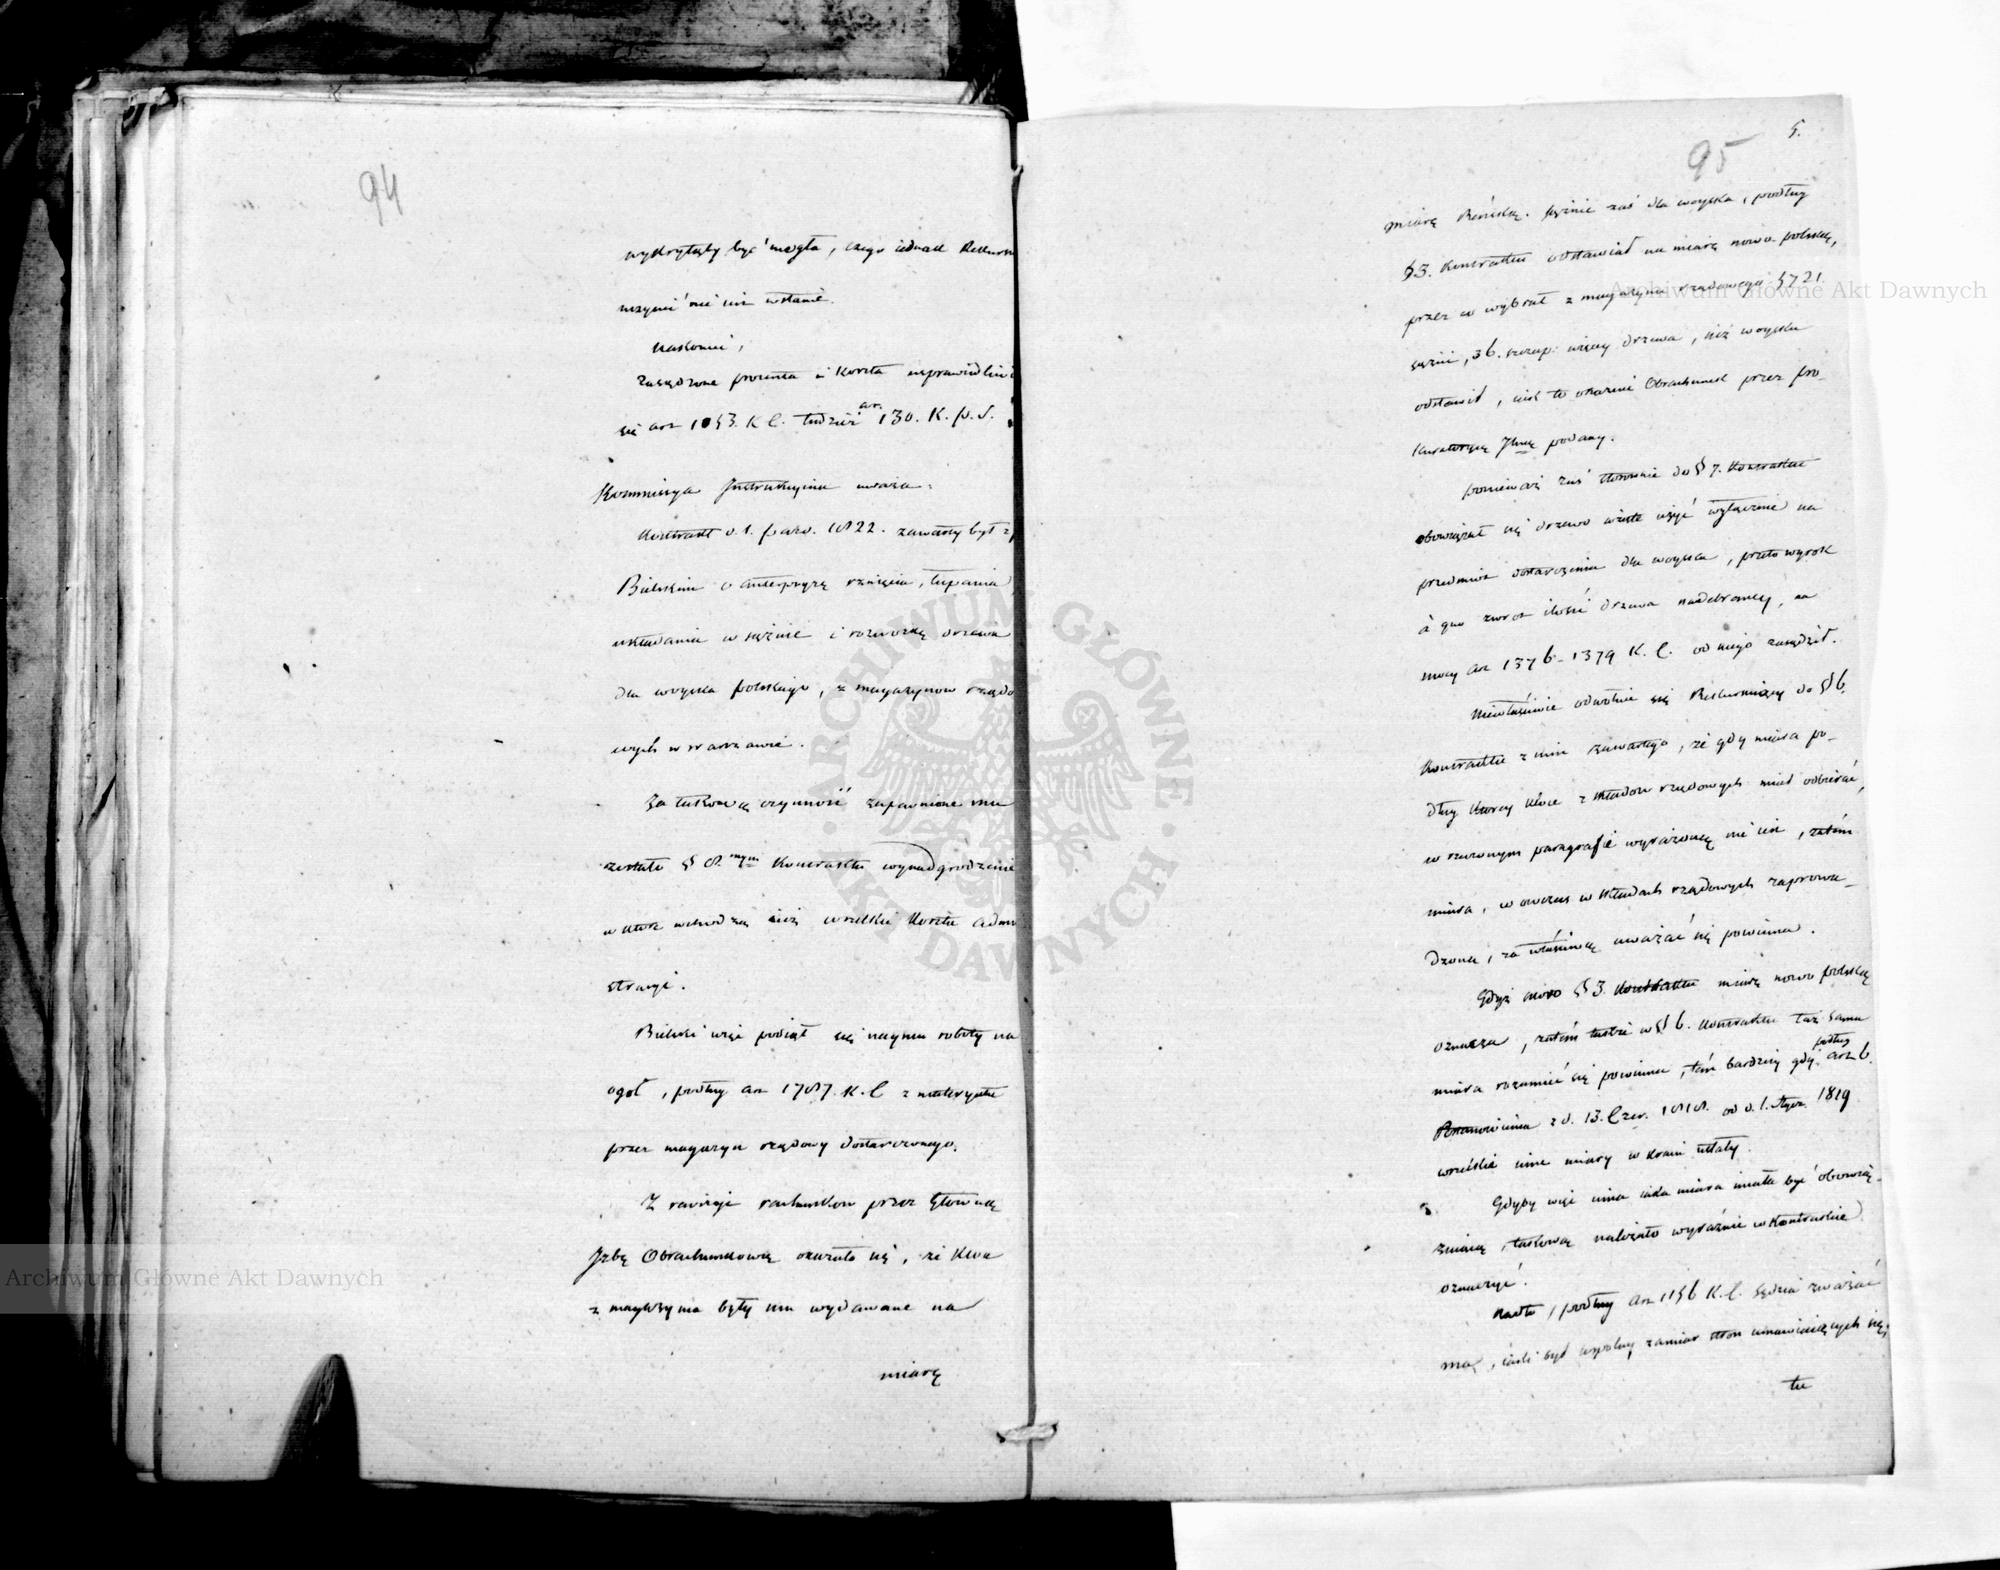 94
wykrytąby być mogła, czego jednak Rekurs
uczynić nie jest wstanie.
Nakoniec,
Zasądzone procenta i koszta usprawiedliwi
się art 1153. K C. tudzież ar. 130. K. p. S.
Kommissya Instrukcyina uważa:
Kontrakt d. 1. paźd. 1822. zawarty był z
Bielskim o anterpryzę rznięcia, łupania
układania w sążnie i rozwózkę drzewa
dla woyska polskiego, z magazynów rządo
wych w Warszawie.
Za takową czynność zapewnione mu
zostało § 8.mym Kontraktu wynadgrodzenie
w które wchodzą iuż wszelkie koszta admi
stracyi.
Bielski więc podiął się naymu roboty na
ogół, podług art 1787. K. C z materyału
przez magazyn rządowy dostarczonego.
Z rewizyi rachunków przez Główną
Izbę Obrachunkową okazało się, że kloce
z magazynu były mu wydawane na
miarę
5.
95
miarę Reńską. Sążnie zaś dla woyska, podług
§3. Kontraktu odstawiał na miarę nowo-polską,
przez co wybrał z magazynu rządowego §721.
sążni, 36. szczap: więcey drzewa, niż woysku
odstawił, iak to okazuie Obrachunek przez Pro-
kuratoryą Jlną podany.
Ponieważ zaś stosownie do § 7. Kontraktu
obowiązał się drzewo wzięte użyć wyłącznie na
przedmiot dostarczenia dla woyska, przeto wyrok
à quo zwrot ilości drzewa nadebraney, na
mocy art 1376-1379 K. C. od niego zasądził.
Niewłaściwie odwołuie się Rekurruiący do § 6.
Kontraktu z nim zawartego, że gdy miara po-
dług którey kloce z składów rządowych miał odbierać,
w rzeczonym paragrafie wyrażoną nie iest, zatém
miara, w owczas w składach rządowych zaprowa-
dzona, za właściwą uważać się powinna.
Gdyż skoro § 3. Kontraktu miarę nowo polską
oznacza, zatém także w § 6. Kontraktu taż sama
miara rozumieć się powinna, tém bardziey gdy podług art 6.
Postanowienia z d. 13. Czer. 1818. od d. 1. Stycz. 1819
wszelkie inne miary w kraiu ustały.
Gdyby więc inna iaka miara miała być obowią-
zuiącą, takową należało wyraźnie w Kontrakcie
oznaczyć.
Nadto, podług art 1156 K. C. Sędzia zważać
ma, iaki był wspólny zamiar stron umawiaiących się;
tu
Archiwum Główne Akt Dawnych
Archiwum Główne Akt Dawnych
ARCHIWUM GŁÓWNE AKT DAWNYCH